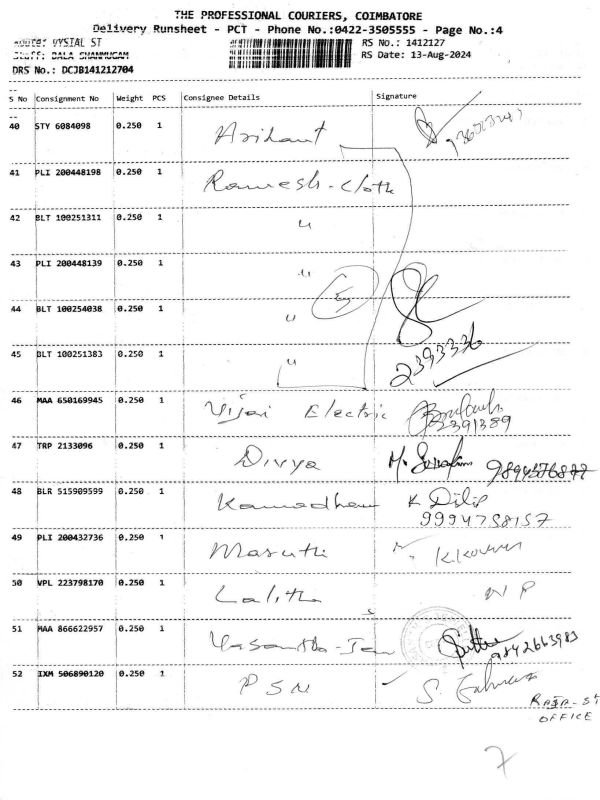 THE PROFESSIONAL COURIERS, COIMBATORE
Delivery Runsheet - PCT - Phone No.:0422-3505555 - Page No.:4
Route: VYSIAL ST RS No.: 1412127
Staff: BALA SHANMUGAM RS Date: 13-Aug-2024
DRS No.: DCJB141212704
S No Consignment No Weight PCS Consignee Details Signature
40 STY 6084098 0.250 1 Arihant
41 PLI 200448198 0.250 1 Ramesh-Cloth
42 BLT 100251311 0.250 1 "
43 PLI 200448139 0.250 1 "
44 BLT 100254038 0.250 1 "
45 BLT 100251383 0.250 1 " 2393336
46 MAA 650169945 0.250 1 Vijai Electric 2391389
47 TRP 2133096 0.250 1 Divya 9894376877
48 BLR 515909599 0.250 1 Kamadhenu K Dilip
9994758157
49 PLI 200432736 0.250 1 Maruthi
50 VPL 223798170 0.250 1 Lalitha
51 MAA 866622957 0.250 1 9842663983
52 IXM 506890120 0.250 1 PSN S.
RAJA-ST
OFFICE
7